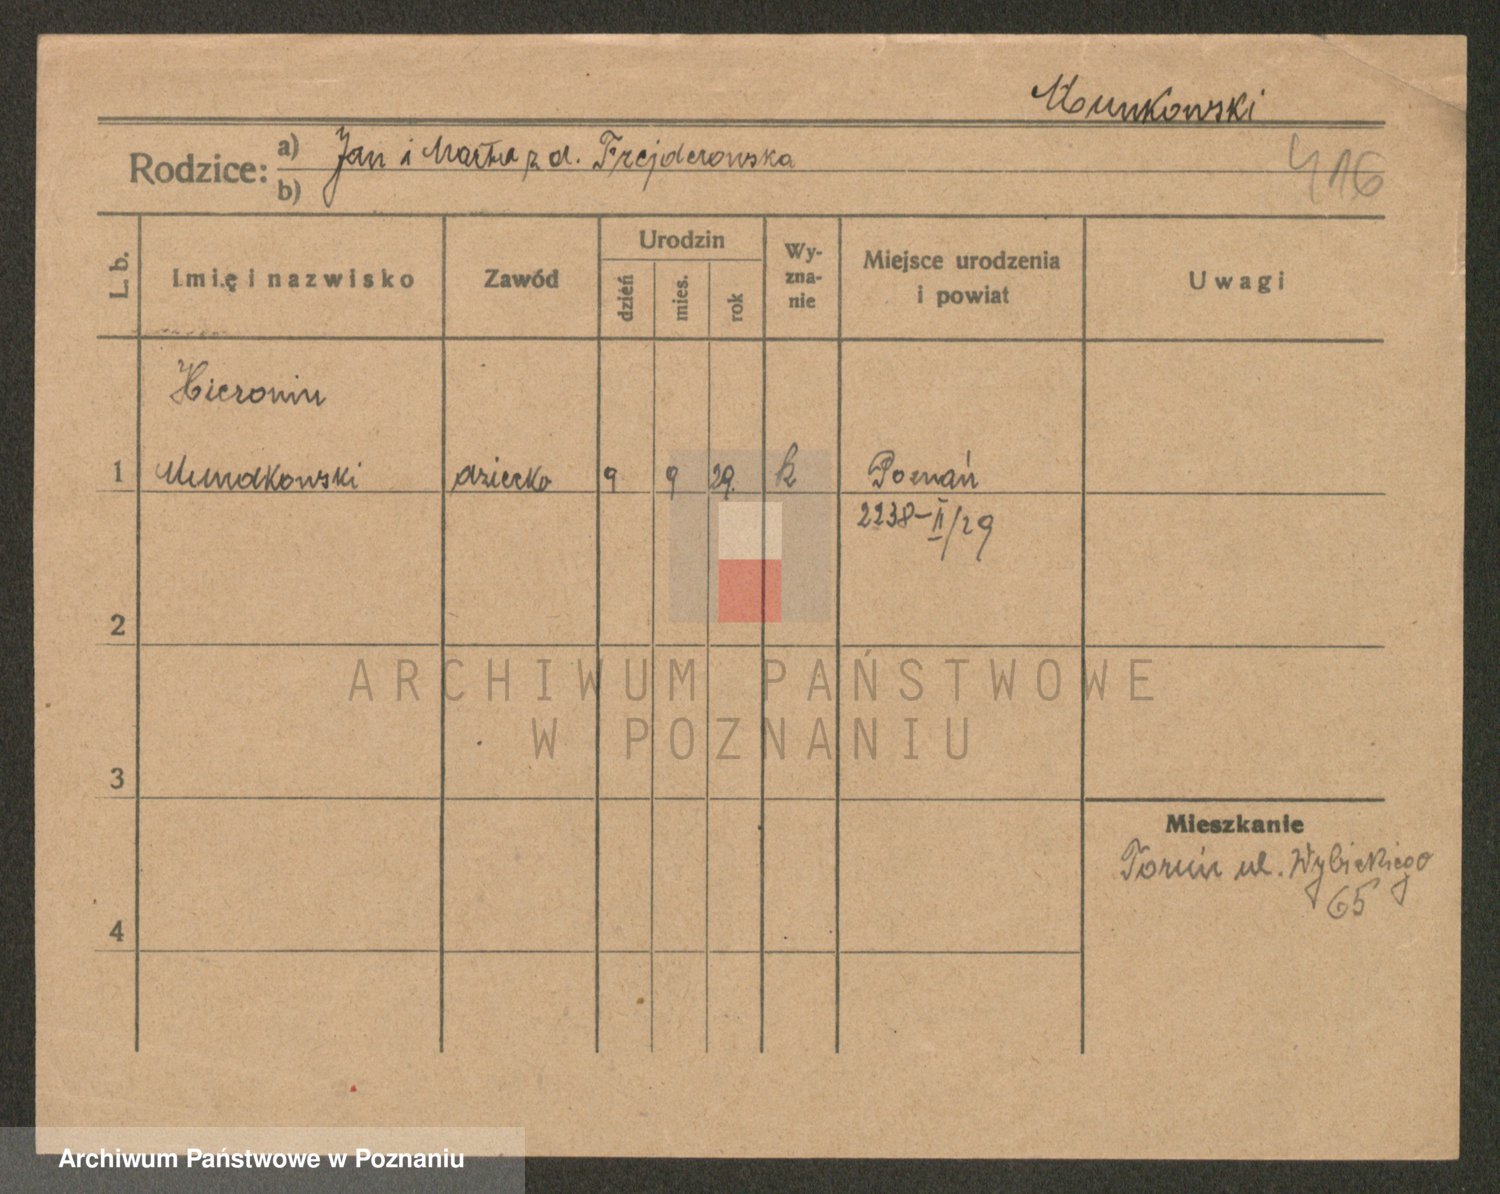 Munkowski
Rodzice: a) Jan i Marta z d. Frejderowska
b)
416
L. b. Imię i nazwisko Zawód Urodzin dzień mies. rok Wyzna-nie Miejsce urodzenia i powiat Uwagi
Hieronim
1 Mundkowski dziecko 9 9 29. k Poznań
2238-II/29
2
ARCHIWUM PAŃSTWOWE
W POZNANIU
3
Mieszkanie
Toruń ul. Wybickiego
65
4
Archiwum Państwowe w Poznaniu